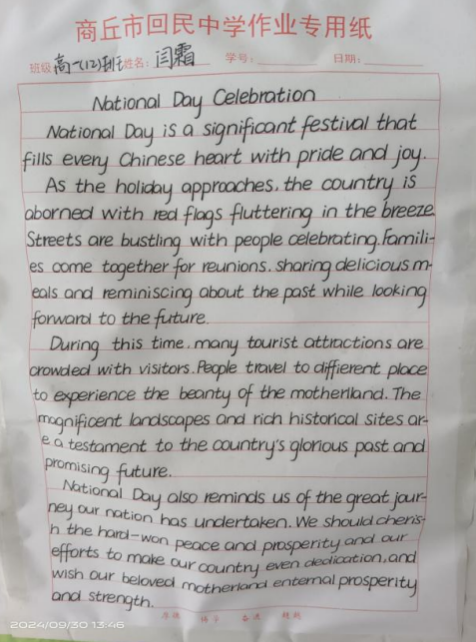 商丘市回民中学作业专用纸
班级 高一(12)班 姓名: 闫霜 学号: 日期:
National Day Celebration
National Day is a significant festival that
fills every Chinese heart with pride and joy.
As the holiday approaches, the country is
aborned with red flags fluttering in the breeze.
Streets are bustling with people celebrating. Famili-
es come together for reunions. sharing delicious m-
eals and reminiscing about the past while looking
forward to the future.
During this time, many tourist attractions are
crowded with visitors. People travel to diffierent place
to experience the beanty of the motherland. The
magnificent landscapes and rich historical sites ar-
e a testament to the country's glorious past and
promising future.
National Day also reminds us of the great jour-
ney our nation has undertaken. We should cheris-
h the hard-won peace and prosperity and our
efforts to make our country even dedication, and
wish our beloved motherland enternal prosperity
and strength.
2024/09/30 13:46